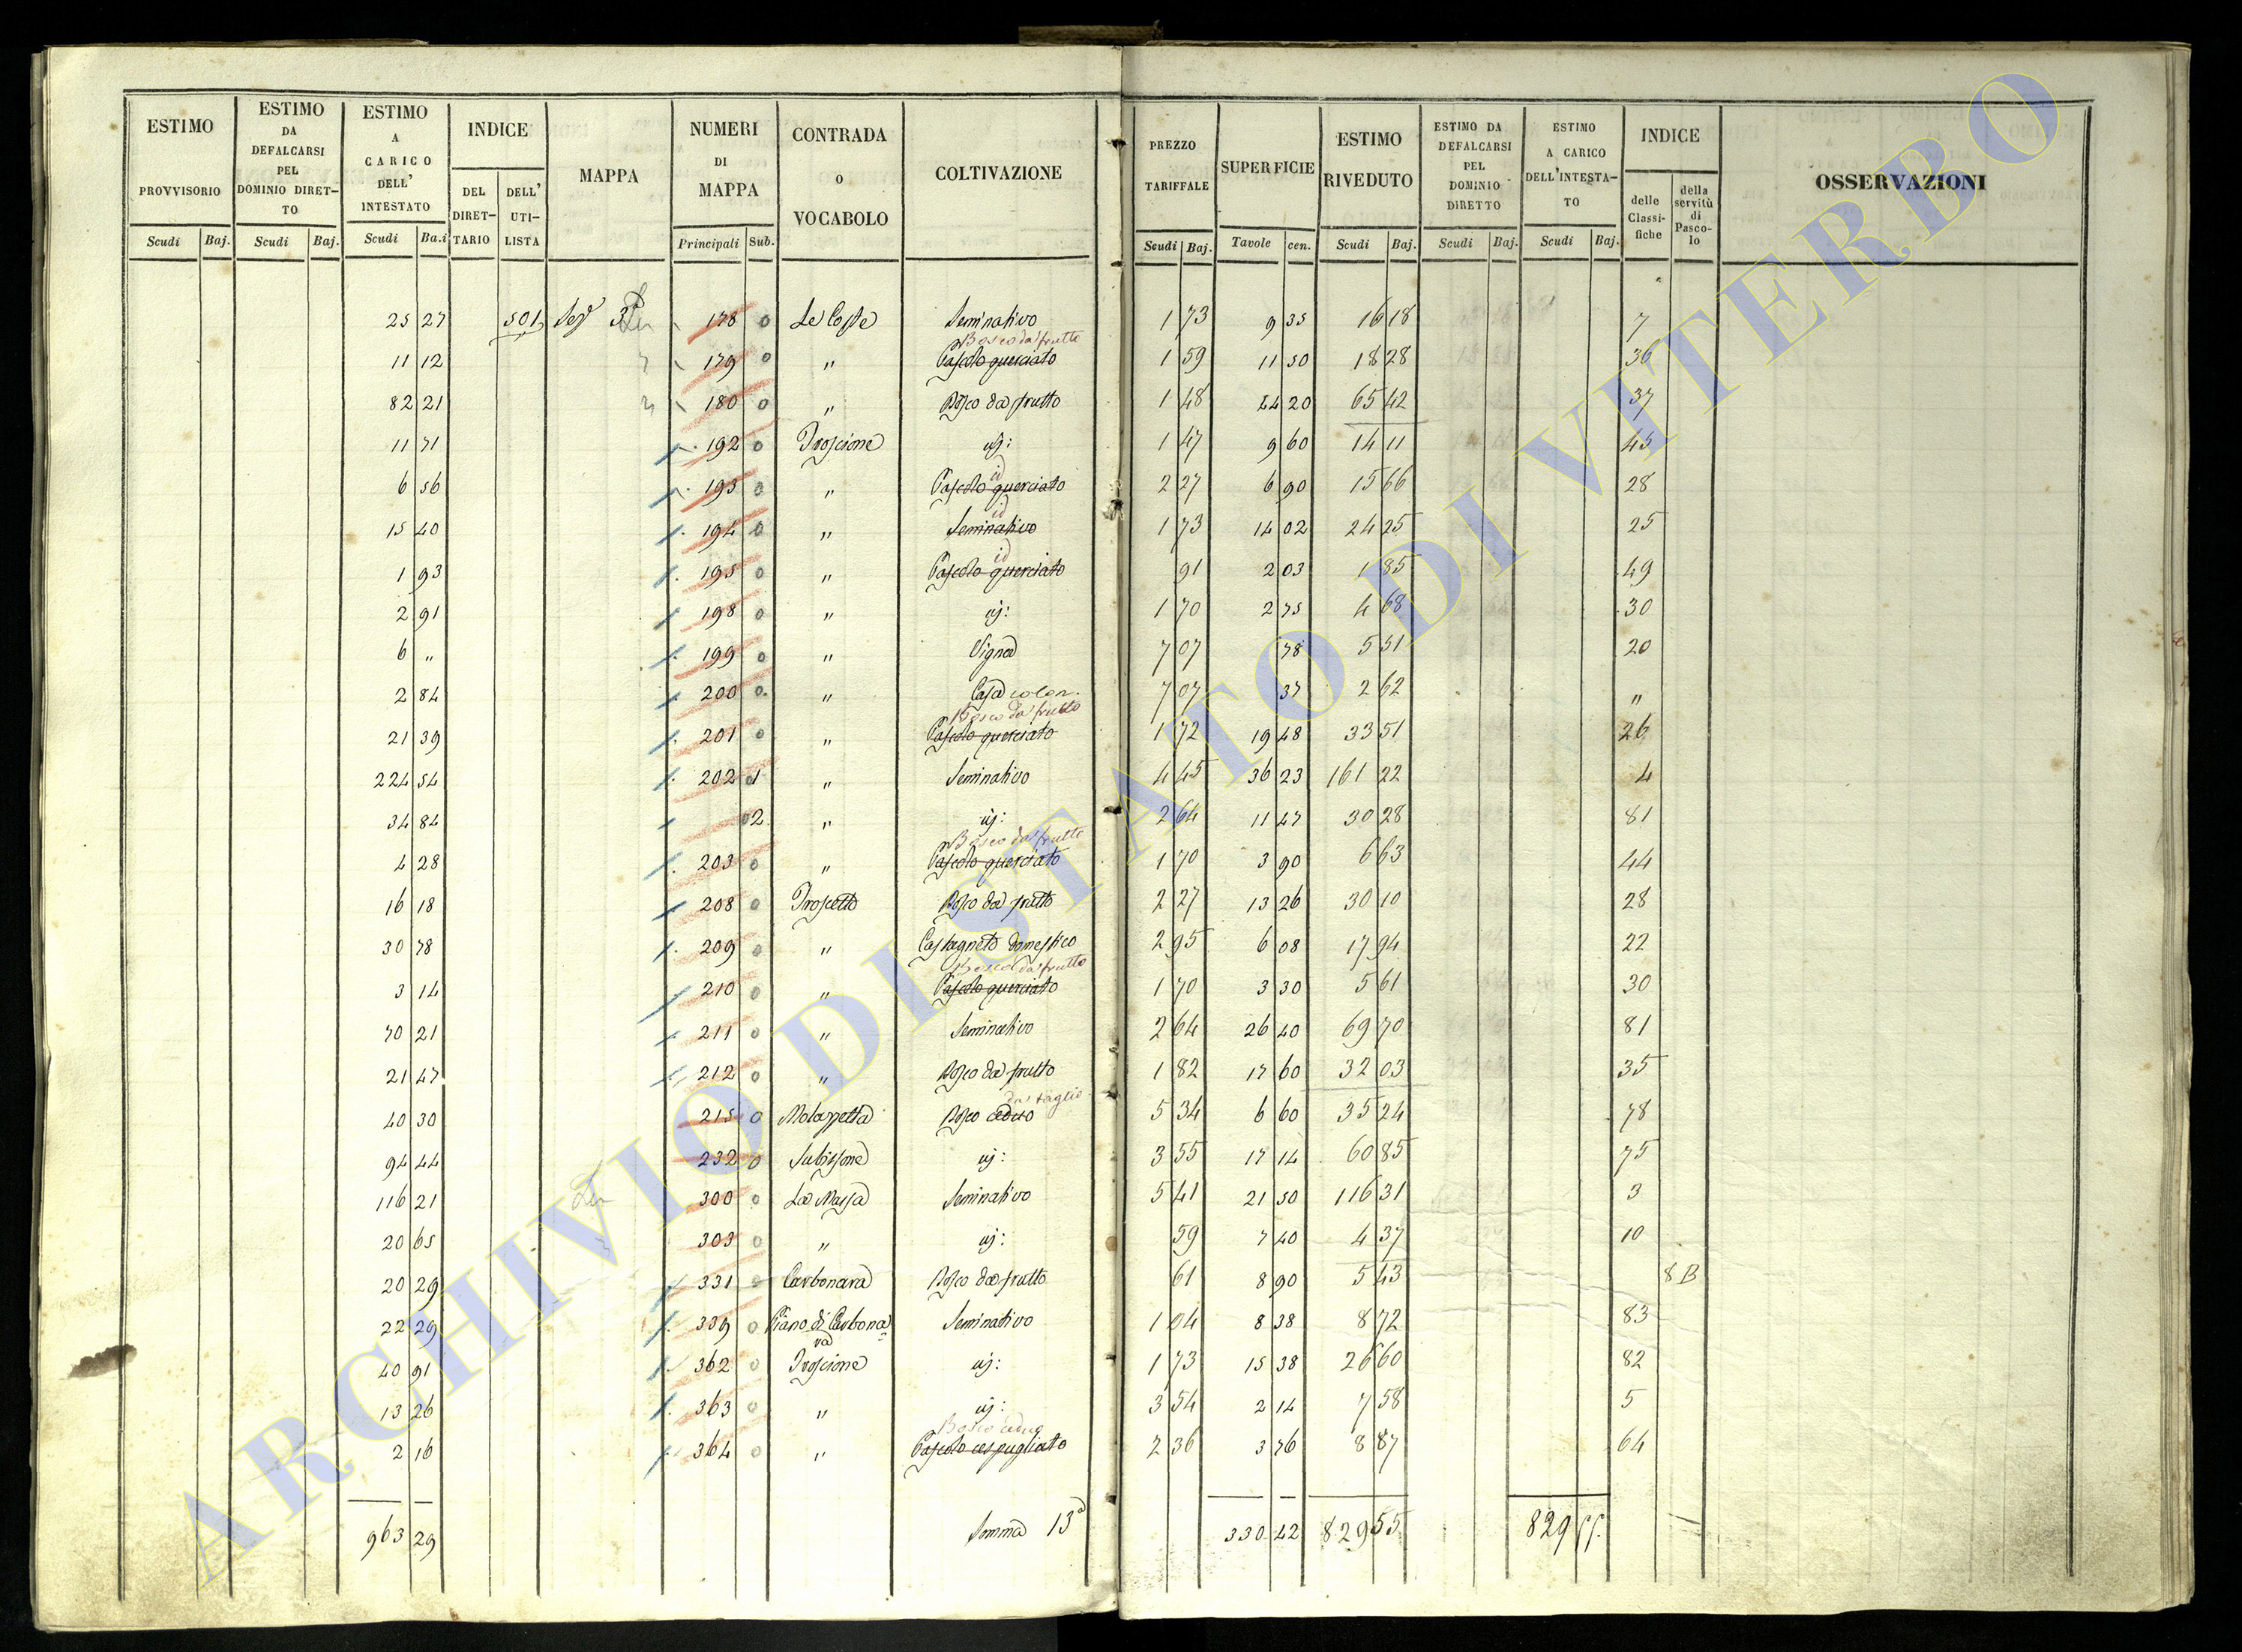 ESTIMO PROVVISORIO Scudi Baj.
ESTIMO DA DEFALCARSI PEL DOMINIO DIRET-TO Scudi Baj.
ESTIMO A CARICO DELL' INTESTATO Scudi Ba.i
INDICE DEL DIRET-TARIO DELL' UTI-LISTA
MAPPA
NUMERI DI MAPPA Principali Sub.
CONTRADA O VOCABOLO
COLTIVAZIONE
PREZZO TARIFFALE Scudi Baj.
SUPERFICIE Tavole cen.
ESTIMO RIVEDUTO Scudi Baj.
ESTIMO DA DEFALCARSI PEL DOMINIO DIRETTO Scudi Baj.
ESTIMO A CARICO DELL'INTESTA-TO Scudi Baj.
INDICE delle Classi-fiche della servitù di Pasco-lo
OSSERVAZIONI
25 27 501 178 0 Le Coste Seminativo 1 73 9 35 16 18 7
Bosco da frutto
11 12 179 0 " Pascolo querciato 1 59 11 50 18 28 36
82 21 180 0 " Bosco da frutto 1 48 44 20 65 42 37
11 71 192 0 Troscione 1 47 9 60 14 11 45
id
6 56 193 0 " Pascolo querciato 2 27 6 90 15 66 28
id
15 40 194 0 " Seminativo 1 73 14 02 24 25 25
id
1 93 195 0 " Pascolo querciato 91 2 03 1 85 49
2 91 198 0 " 1 70 2 75 4 68 30
6 " 199 0 " Vigna 7 07 78 5 51 20
2 84 200 0 " Casa colon. 7 07 37 2 62 "
Bosco da frutto
21 39 201 0 " Pascolo querciato 1 72 19 48 33 51 26
224 54 202 1 " Seminativo 4 45 36 23 161 22 4
34 84 2 " 2 64 11 47 30 28 81
Bosco da frutto
4 28 203 0 " Pascolo querciato 1 70 3 90 6 63 44
16 18 208 0 Troscetto Bosco da frutto 2 27 13 26 30 10 28
30 78 209 0 " Castagneto domestico 2 95 6 08 17 94 22
Bosco da frutto
3 14 210 0 " Pascolo querciato 1 70 3 30 5 61 30
70 21 211 0 " Seminativo 2 64 26 40 69 70 81
21 47 212 0 " Bosco da frutto 1 82 17 60 32 03 35
da taglio
40 30 215 0 Molazzetta Bosco ceduo 5 34 6 60 35 24 78
94 44 232 0 5 34 3 55 17 14 60 85 75
116 21 300 0 La Massa Seminativo 5 41 21 50 116 31 3
20 65 303 0 " 59 7 40 4 37 10
20 29 331 0 Carbonara Bosco da frutto 61 8 90 5 43 8 B
22 29 339 0 Piano di Carbonara Seminativo 1 04 8 38 8 72 83
40 91 362 0 Troscione 1 73 15 38 26 60 82
13 26 363 0 " 3 54 2 14 7 58 5
Bosco ceduo
2 16 364 0 " Pascolo cespugliato 2 36 3 76 8 87 64
963 29 Somma 13a 330 42 829 55 829 55
ARCHIVIO DI STATO DI VITERBO